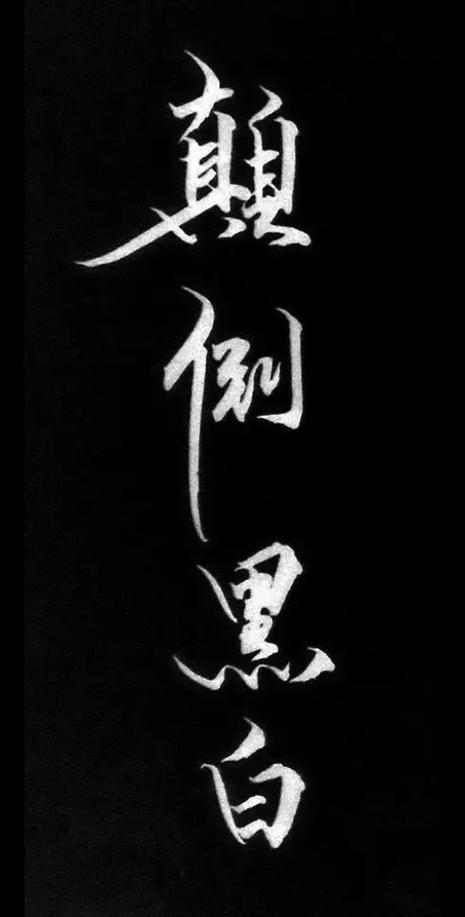 顛倒黑白